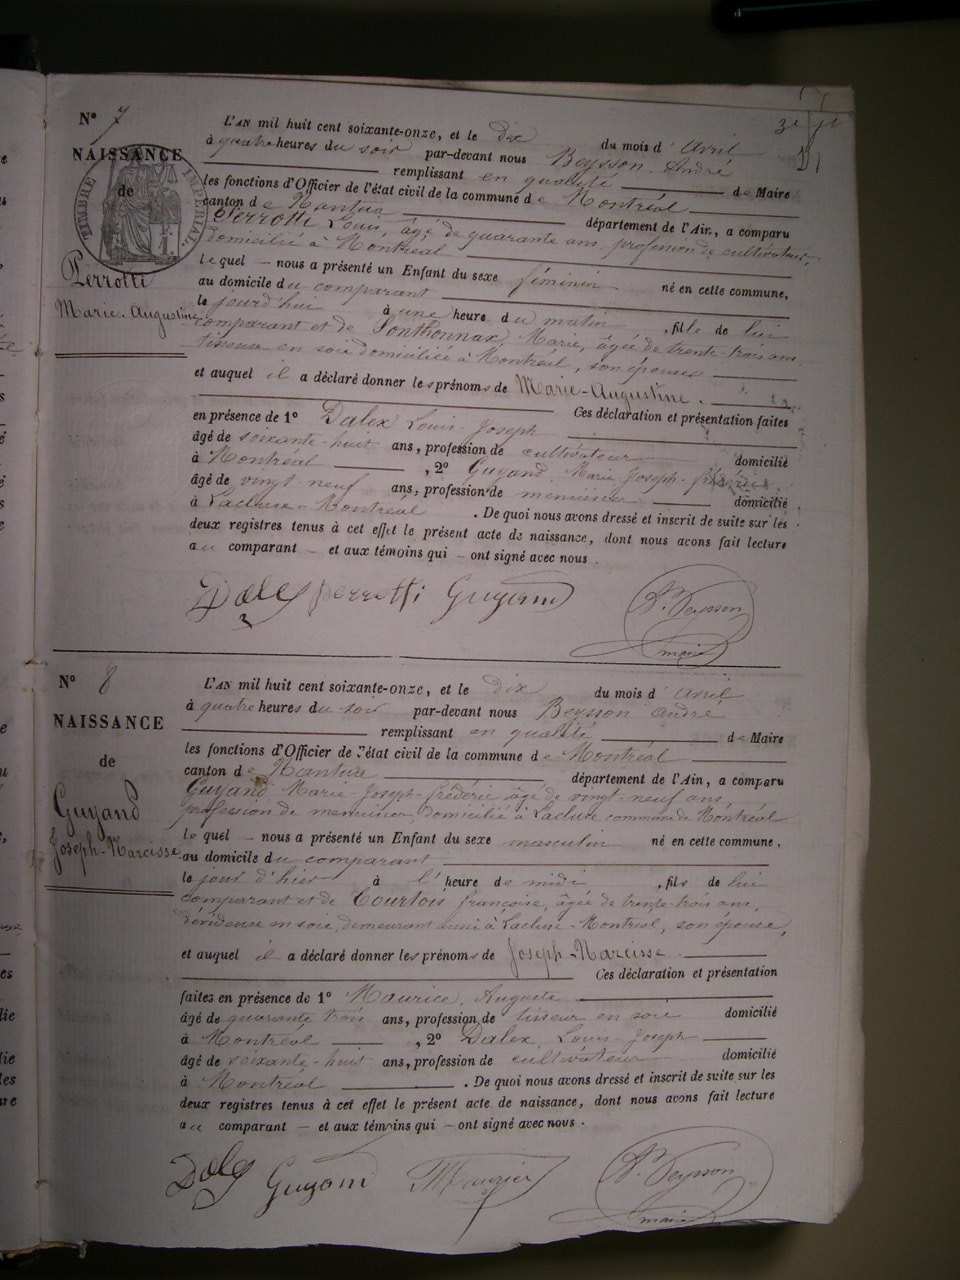 N° 7
NAISSANCE
de
TIMBRE IMPÉRIAL
Perrotti
Marie-Augustine
L'AN mil huit cent soixante-onze, et le dix du mois d'avril
à quatre heures du soir par-devant nous Beysson André
remplissant en qualité de Maire
les fonctions d'Officier de l'état civil de la commune de Montréal
canton de Nantua département de l'Ain, a comparu
Perrotti Louis, âgé de quarante ans, profession de cultivateur,
domicilié à Montréal
lequel – nous a présenté un Enfant du sexe féminin né en cette commune,
au domicile du comparant
le jourd'hui à une heure du matin, fille de lui
comparant et de Sonthonnax, Marie, âgée de trente-trois ans,
tisseuse en soie domiciliée à Montréal, son épouse
et auquel il a déclaré donner les prénoms de Marie-Augustine.
Ces déclaration et présentation faites
en présence de 1° Dalex Louis-Joseph
âgé de soixante-huit ans, profession de cultivateur domicilié
à Montréal, 2° Guyand Marie Joseph-frédéric
âgé de vingt-neuf ans, profession de menuisier domicilié
à Lacluse-Montréal. De quoi nous avons dressé et inscrit de suite sur les
deux registres tenus à cet effet le présent acte de naissance, dont nous avons fait lecture
au comparant – et aux témoins qui – ont signé avec nous.
Dalex perrotti Guyand A. Beysson
maire
N° 8
NAISSANCE
de
Guyand
Joseph-Narcisse
L'AN mil huit cent soixante-onze, et le dix du mois d'avril
à quatre heures du soir par-devant nous Beysson André
remplissant en qualité de Maire
les fonctions d'Officier de l'état civil de la commune de Montréal
canton de Nantua département de l'Ain, a comparu
Guyand Marie-Joseph-frédéric âgé de vingt-neuf ans,
profession de menuisier, domicilié à Lacluse commune de Montréal
lequel – nous a présenté un Enfant du sexe masculin né en cette commune,
au domicile du comparant
le jour d'hier à l'heure de midi, fils de lui
comparant et de Courtois françoise, âgée de trente-trois ans,
dévideuse en soie, demeurant aussi à Lacluse-Montréal, son épouse,
et auquel il a déclaré donner les prénoms de Joseph-Narcisse
Ces déclaration et présentation
faites en présence de 1° Maurice, Auguste
âgé de quarante trois ans, profession de tisseur en soie domicilié
à Montréal, 2° Dalex, Louis-Joseph
âgé de soixante-huit ans, profession de cultivateur domicilié
à Montréal. De quoi nous avons dressé et inscrit de suite sur les
deux registres tenus à cet effet le présent acte de naissance, dont nous avons fait lecture
au comparant – et aux témoins qui – ont signé avec nous.
Dalex Guyand A. Beysson
maire